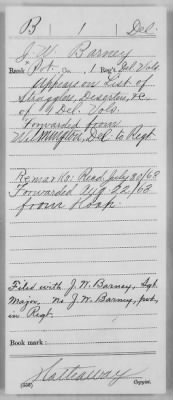 B | 1 | Del.
J. W. Barney
Rank Pvt. Co. 1 Reg't Del Vols.
Appears on List of
Stragglers, Deserters, &c.
of 1" Del. Vols.
forwarded from
Wilmington, Del to Regt
Remarks: Recd July 30/63
Forwarded Aug 22/63
from Hosp.
Filed with J. W. Barney, Sgt.
Major. No J. W. Barney, pvt.
in Regt.
Book mark:
Hattaway
(336) Copyist.